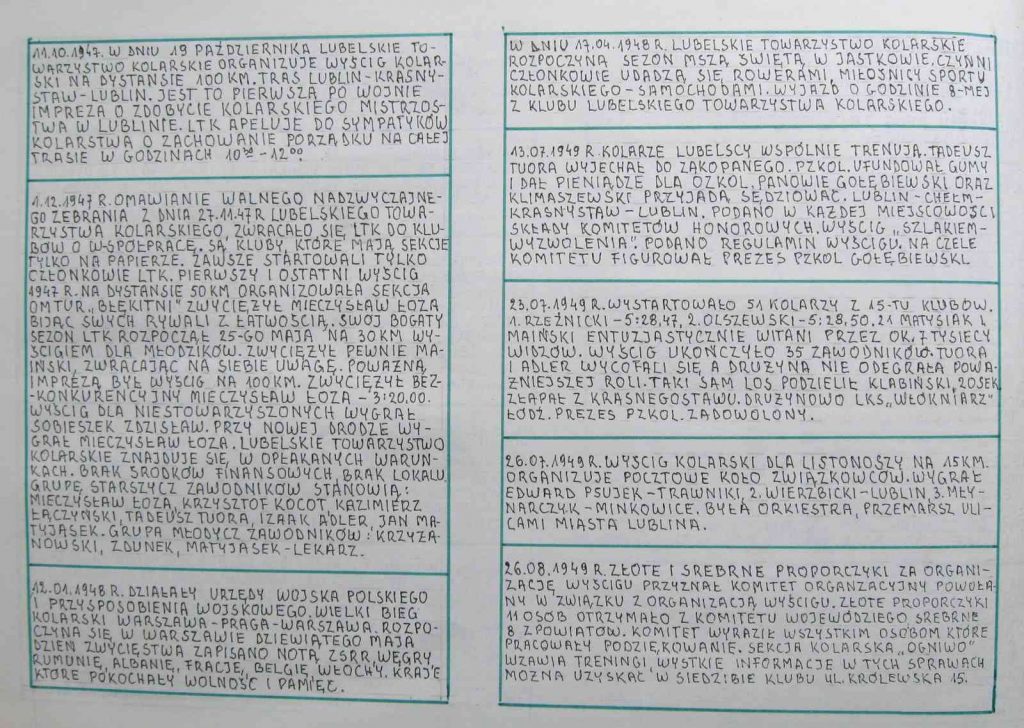 11.10.1947. W DNIU 19 PAŹDZIERNIKA LUBELSKIE TO-
WARZYSTWO KOLARSKIE ORGANIZUJE WYŚCIG KOLAR-
SKI NA DYSTANSIE 100 KM. TRAS LUBLIN-KRASNY-
STAW-LUBLIN. JEST TO PIERWSZA PO WOJNIE
IMPREZA O ZDOBYCIE KOLARSKIEGO MISTRZOS-
TWA W LUBLINIE. LTK APELUJE DO SYMPATYKÓW
KOLARSTWA O ZACHOWANIE PORZĄDKU NA CAŁEJ
TRASIE W GODZINACH 10³⁰ - 12⁰⁰
1.12.1947 R. OMAWIANIE WALNEGO NADZWYCZAJNE-
GO ZEBRANIA Z DNIA 27.11.47R LUBELSKIEGO TOWA-
RZYSTWA KOLARSKIEGO, ZWRACAŁO SIĘ LTK DO KLU-
BÓW O WSPÓŁPRACĘ. SĄ KLUBY, KTÓRE MAJĄ SEKCJE
TYLKO NA PAPIERZE. ZAWSZE STARTOWALI TYLKO
CZŁONKOWIE LTK. PIERWSZY I OSTATNI WYŚCIG
1947 R. NA DYSTANSIE 50 KM ORGANIZOWAŁA SEKCJA
OMTUR „BŁĘKITNI" ZWYCIĘŻYŁ MIECZYSŁAW ŁOZA
BIJĄC SWYCH RYWALI Z ŁATWOŚCIĄ. SWÓJ BOGATY
SEZON LTK ROZPOCZĄŁ 25-GO MAJA NA 30 KM WY-
ŚCIGIEM DLA MŁODZIKÓW. ZWYCIĘŻYŁ PEWNIE MA-
IŃSKI, ZWRACAJĄC NA SIEBIE UWAGĘ. POWAŻNĄ
IMPREZĄ BYŁ WYŚCIG NA 100 KM. ZWYCIĘŻYŁ BEZ-
KONKURENCYJNY MIECZYSŁAW ŁOZA - 3:20,00.
WYŚCIG DLA NIESTOWARZYSZONYCH WYGRAŁ
SOBIESZEK ZDZISŁAW. PRZY NOWEJ DRODZE WY-
GRAŁ MIECZYSŁAW ŁOZA. LUBELSKIE TOWARZYSTWO
KOLARSKIE ZNAJDUJE SIĘ, W OPŁAKANYCH WARUN-
KACH. BRAK ŚRODKÓW FINANSOWYCH, BRAK LOKALU.
GRUPĘ STARSZYCZ ZAWODNIKÓW STANOWIĄ:
MIECZYSŁAW ŁOZA, KRZYSZTOF KOCOT, KAZIMIERZ
ŁĄCZYŃSKI, TADEUSZ TUORA, IZAAK ADLER, JAN MA-
TYJASEK. GRUPA MŁODYCZ ZAWODNIKÓW: KRZYŻA-
NOWSKI, ZDUNEK, MATYJASEK-LEKARZ.
12.01.1948 R. DZIAŁAŁY URZĘDY WOJSKA POLSKIEGO
I PRZYSPOSOBIENIA WOJSKOWEGO. WIELKI BIEG
KOLARSKI WARSZAWA-PRAGA-WARSZAWA. ROZPO-
CZYNA SIĘ W WARSZAWIE DZIEWIĄTEGO MAJA
DZIEŃ ZWYCIĘSTWA ZAPISANO NOTĄ ZSRR, WĘGRY,
RUMUNIĘ, ALBANIE, FRACJĘ, BELGIĘ, WŁOCHY. KRAJE
KTÓRE POKOCHAŁY WOLNOŚĆ I PAMIĘĆ.
W DNIU 17.04.1948 R. LUBELSKIE TOWARZYSTWO KOLARSKIE
ROZPOCZYNA SEZON MSZĄ ŚWIĘTĄ W JASTKOWIE. CZYNNI
CZŁONKOWIE UDADZĄ SIĘ ROWERAMI, MIŁOŚNICY SPORTU
KOLARSKIEGO-SAMOCHODAMI. WYJAZD O GODZINIE 8-MEJ
Z KLUBU LUBELSKIEGO TOWARZYSTWA KOLARSKIEGO.
13.07.1949 R. KOLARZE LUBELSCY WSPÓLNIE TRENUJĄ. TADEUSZ
TUORA WYJECHAŁ DO ZAKOPANEGO. PZKOL. UFUNDOWAŁ GUMY
I DAŁ PIENIĄDZE DLA OZKOL. PANOWIE GOŁĘBIEWSKI ORAZ
KLIMASZEWSKI PRZYJADĄ SĘDZIOWAĆ. LUBLIN-CHEŁM-
KRASNYSTAW-LUBLIN. PODANO W KAŻDEJ MIEJSCOWOŚCI
SKŁADY KOMITETÓW HONOROWYCH. WYŚCIG „SZLAKIEM-
WYZWOLENIA". PODANO REGULAMIN WYŚCIGU. NA CZELE
KOMITETU FIGUROWAŁ PREZES PZKOL GOŁĘBIEWSKI.
23.07.1949 R. WYSTARTOWAŁO 51 KOLARZY Z 15-TU KLUBÓW.
1. RZEŹNICKI-5:28,47, 2. OLSZEWSKI-5:28,50, 21 MATYSIAK I,
MAIŃSKI ENTUZJASTYCZNIE WITANI PRZEZ OK. 7 TYSIĘCY
WIDZÓW. WYŚCIG UKOŃCZYŁO 35 ZAWODNIKÓW. TUORA
I ADLER WYCOFALI SIĘ A DRUŻYNA NIE ODEGRAŁA POWA-
ŻNIEJSZEJ ROLI. TAKI SAM LOS PODZIELIŁ KLABIŃSKI, 20 SEK
ZŁAPAŁ Z KRASNEGOSTAWU. DRUŻYNOWO LKS „WŁÓKNIARZ"
ŁÓDŹ. PREZES PZKOL. ZADOWOLONY.
26.07.1949 R. WYŚCIG KOLARSKI DLA LISTONOSZY NA 15 KM.
ORGANIZUJE POCZTOWE KOŁO ZWIĄZKOWCÓW. WYGRAŁ
EDWARD PSUJEK-TRAWNIKI, 2. WIERZBICKI-LUBLIN, 3. MŁY-
NARCZYK-MINKOWICE. BYŁA ORKIESTRA, PRZEMARSZ ULI-
CAMI MIASTA LUBLINA.
26.08.1949 R. ZŁOTE I SREBRNE PROPORCZYKI ZA ORGANI-
ZACJĘ WYŚCIGU PRZYZNAŁ KOMITET ORGANZACYJNY POWOŁA-
NY W ZWIĄZKU Z ORGANIZACJĄ WYŚCIGU. ZŁOTE PROPORCZYKI
11 OSÓB OTRZYMAŁO Z KOMITETU WOJEWÓDZIEGO SREBRNE
8 Z POWIATÓW. KOMITET WYRAZIŁ WSZYSTKIM OSOBOM KTÓRE
PRACOWAŁY PODZIĘKOWANIE. SEKCJA KOLARSKA „OGNIWO"
WZAWIA TRENINGI, WYSTKIE INFORMACJE W TYCH SPRAWACH
MOŻNA UZYSKAĆ W SIEDZIBIE KLUBU UL. KRÓLEWSKA 15.